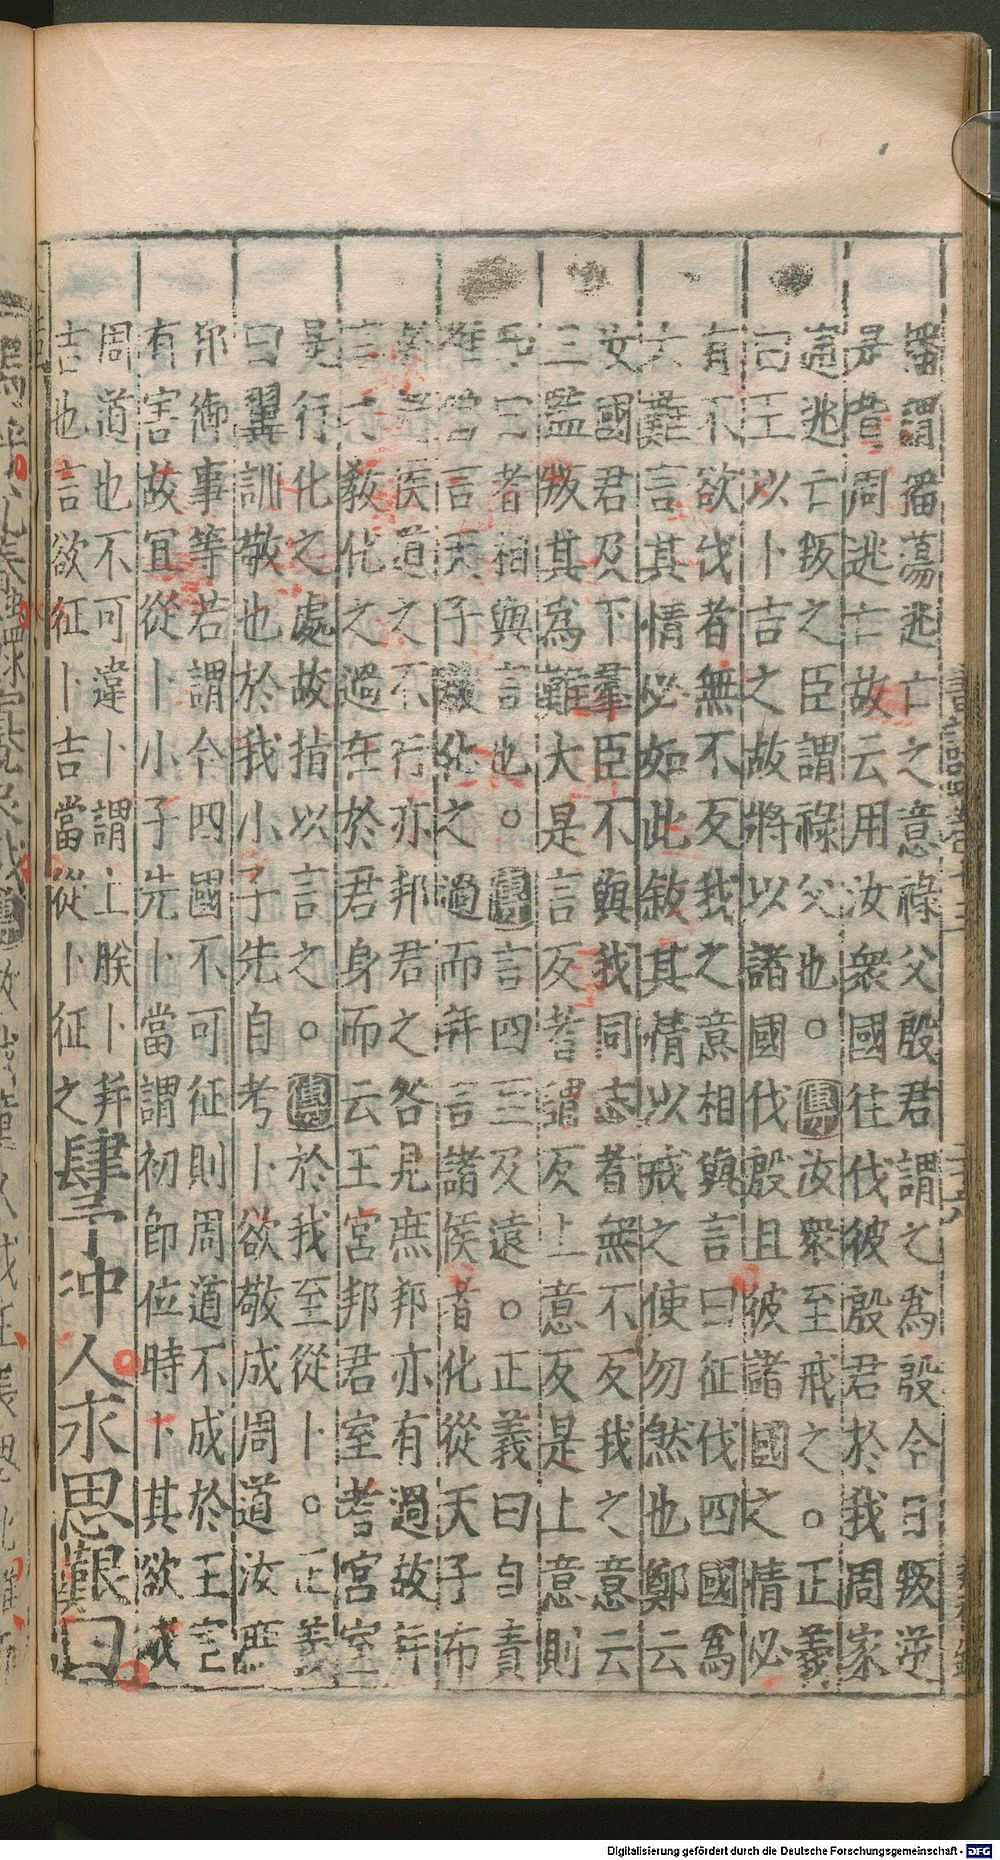 播謂播蕩逃亡之意祿父殷君謂之為殷今日叛逆
是昔周逃亡故云用汝衆國往伐彼殷君於我周家
逋逃亡叛之臣謂祿父也。傳汝衆至戒之。正義
曰王以卜吉之故將以諸國伐殷且彼諸國之情必
有不欲伐者無不反我之意相與言曰征伐四國為
大難言其情必如此敘其情以戒之使勿然也鄭云
汝國君及下羣臣不與我同志者無不反我之意云
三監叛其為難大是言反者謂反上意反是上意則
曰者相與言也。傳言四至及遠。正義曰自責
惟當言天子教化之過而并言諸侯者化從天子布
諸侯道之不行亦邦君之咎見庶邦亦有過故并
言之教化之過在於君身而云王宮邦君室者宮室
是行化之處故指以言之。傳於我至從卜。正義
曰翼訓敬也於我小子先自考卜欲敬成周道汝庶
邦御事等若謂今四國不可征則周道不成於王室
有害故宜從卜小子先卜當謂初即位時卜其欲成
周道也不可違卜謂上朕卜并
吉也言欲征卜吉當從卜征之肆予沖人永思艱曰
Digitalisierung gefördert durch die Deutsche Forschungsgemeinschaft - DFG